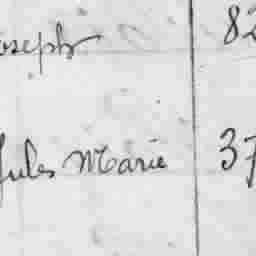 Joseph 82
Jules Marie 37